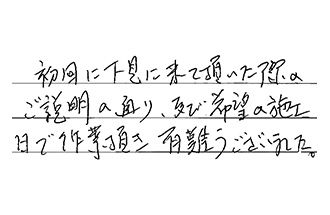 初回に下見に来て頂いた際の
ご説明の通り、及び希望の施工
日で作業頂き有難うございました。